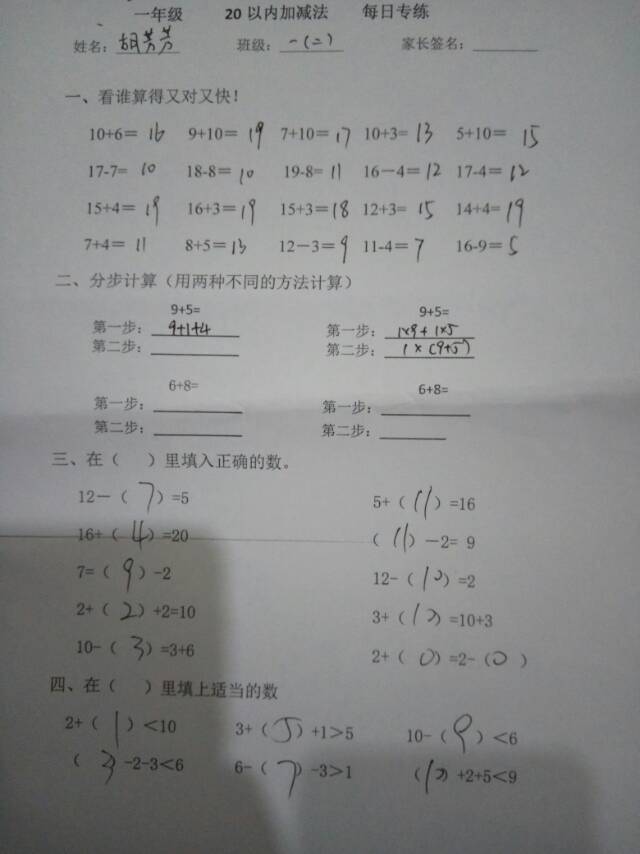 一年级 20 以内加减法 每日专练
姓名：胡芳芳 班级：一(二) 家长签名：
一、看谁算得又对又快！
10+6= 16 9+10= 19 7+10= 17 10+3= 13 5+10= 15
17-7= 10 18-8= 10 19-8= 11 16－4= 12 17-4= 12
15+4= 19 16+3= 19 15+3= 18 12+3= 15 14+4= 19
7+4= 11 8+5= 13 12－3= 9 11-4= 7 16-9= 5
二、分步计算（用两种不同的方法计算）
9+5= 9+5=
第一步：9+1+4 第一步：1×9+1×5
第二步： 第二步：1×(9+5)
6+8= 6+8=
第一步： 第一步：
第二步： 第二步：
三、在（ ）里填入正确的数。
12－（7）=5 5+（11）=16
16+（4）=20 （11）－2= 9
7=（9）-2 12-（10）=2
2+（2）+2=10 3+（10）=10+3
10-（3）=3+6 2+（0）=2-（0）
四、在（ ）里填上适当的数
2+（1）＜10 3+（5）+1>5 10-（9）＜6
（3）-2-3＜6 6-（7）-3>1 （10）+2+5＜9